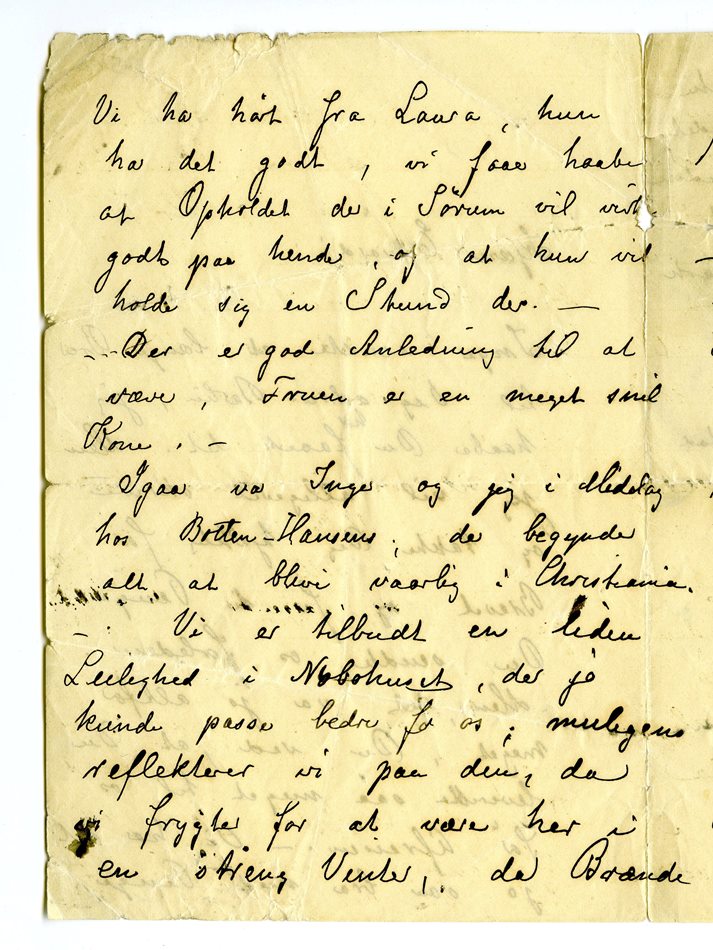 Vi ha hørt fra Laura, hun
ha det godt, vi faae haabe
at Opholdet der i Sørum vil virke
godt paa hende, og at hun vil
holde sig en Stund der. —
— Der er god Anledning til at
være, Fruen er en meget snil
Kone. —
Igaar va Inga og jeg i Middag
hos Botten-Hansens, de begynder
alt at blive vaarlig i Christiania.
— Vi er tilbudt en liden
Leilighed i Nabohuset, der jo
kunde passe bedre for os, muligens
reflekterer vi paa den, da
vi frygter for at være her i
en streng Vinter, da Brænde